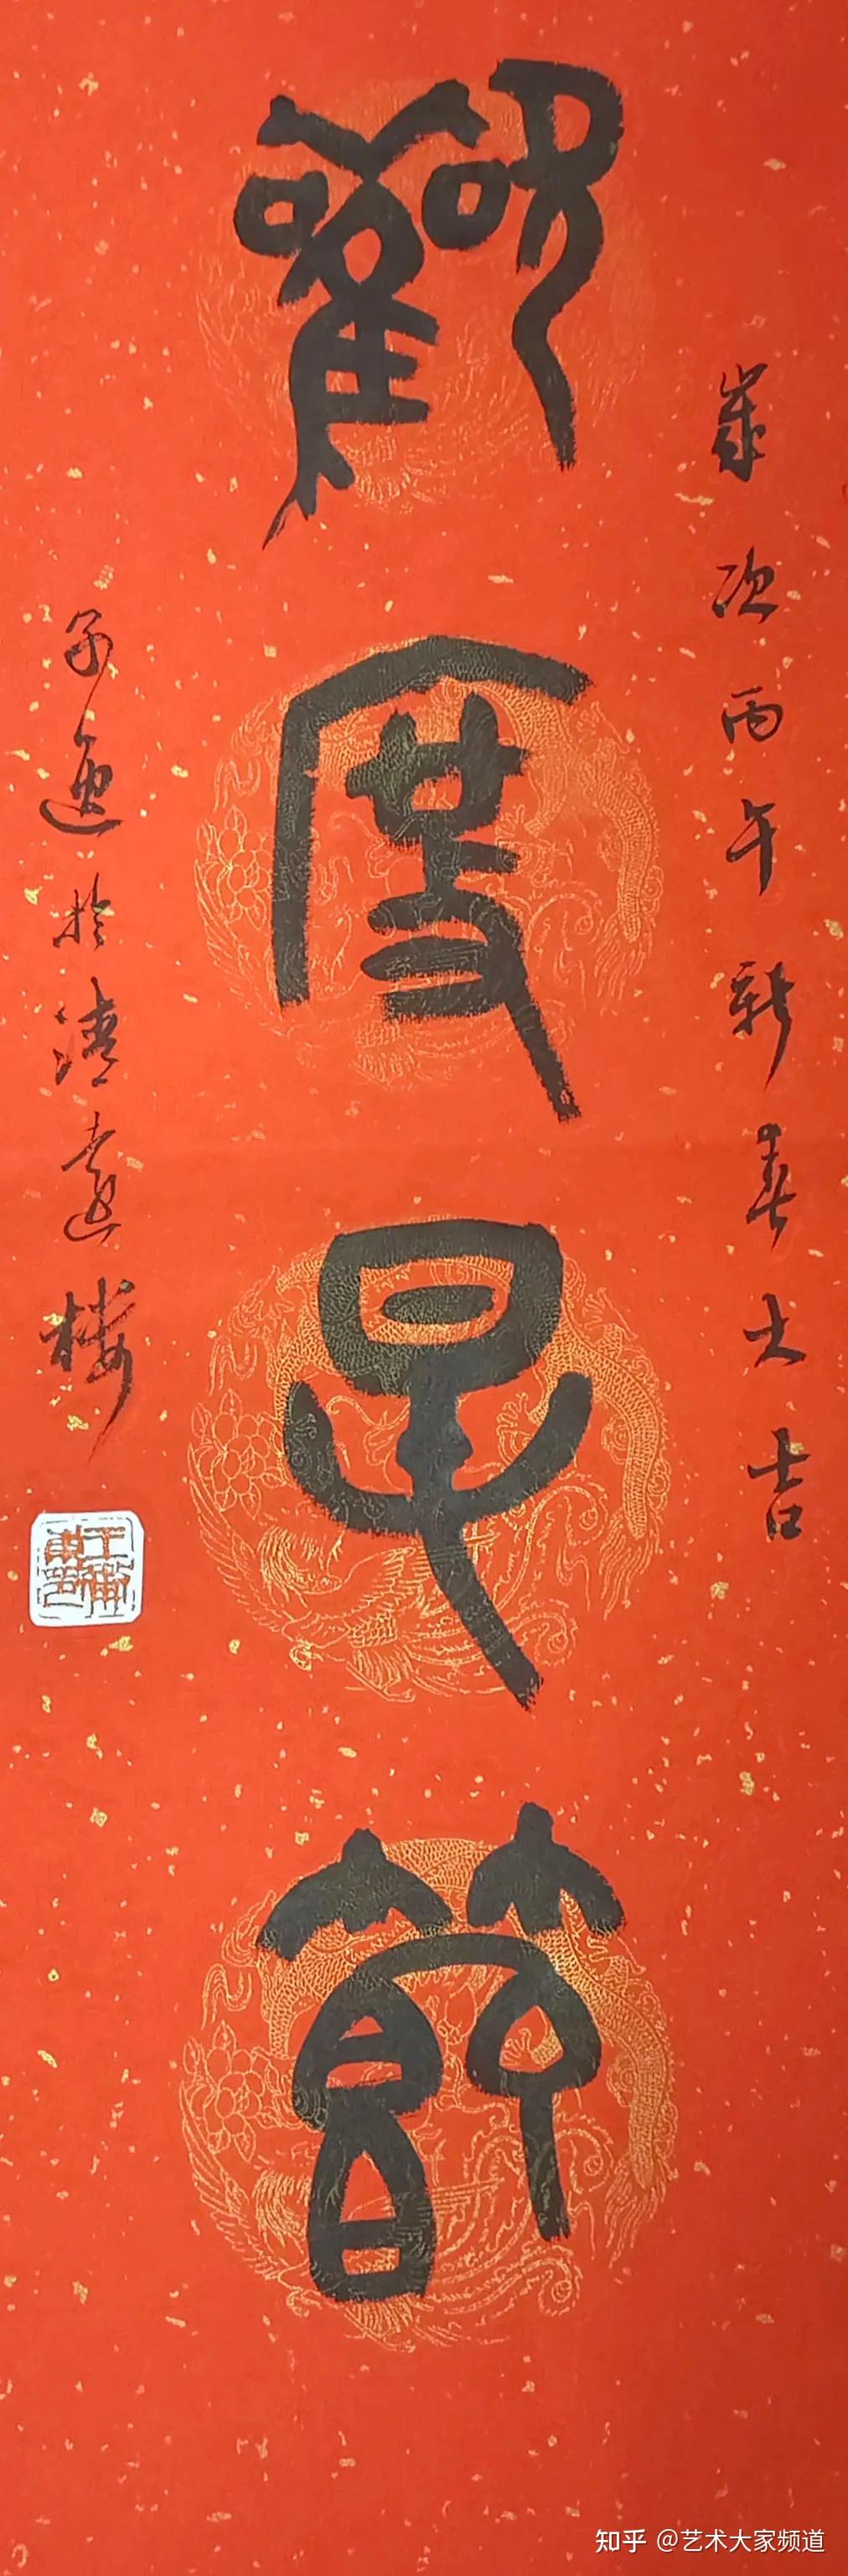 歲次丙午新春大吉
歡度春節
子於清遠樓
知乎 @艺术大家频道